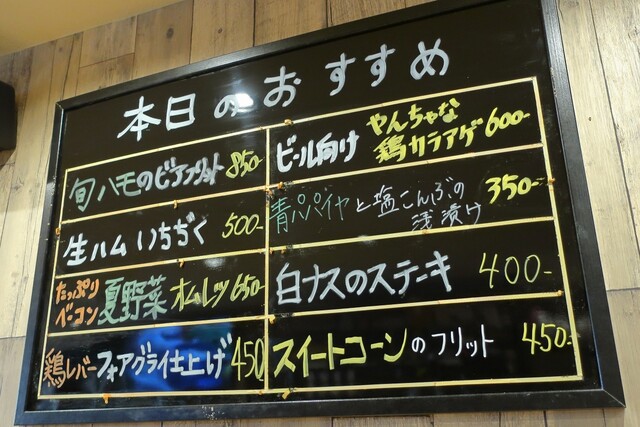 本日のおすすめ
旬ハモのビアフリット 850-
生ハムいちぢく 500-
たっぷり
ベーコン 夏野菜 オムレツ 650-
鶏レバーフォアグライ仕上げ 450
ビール向け やんちゃな
鶏カラアゲ 600-
青パパイヤと塩こんぶの
浅漬け 350-
白ナスのステーキ 400-
スイートコーンのフリット 450-